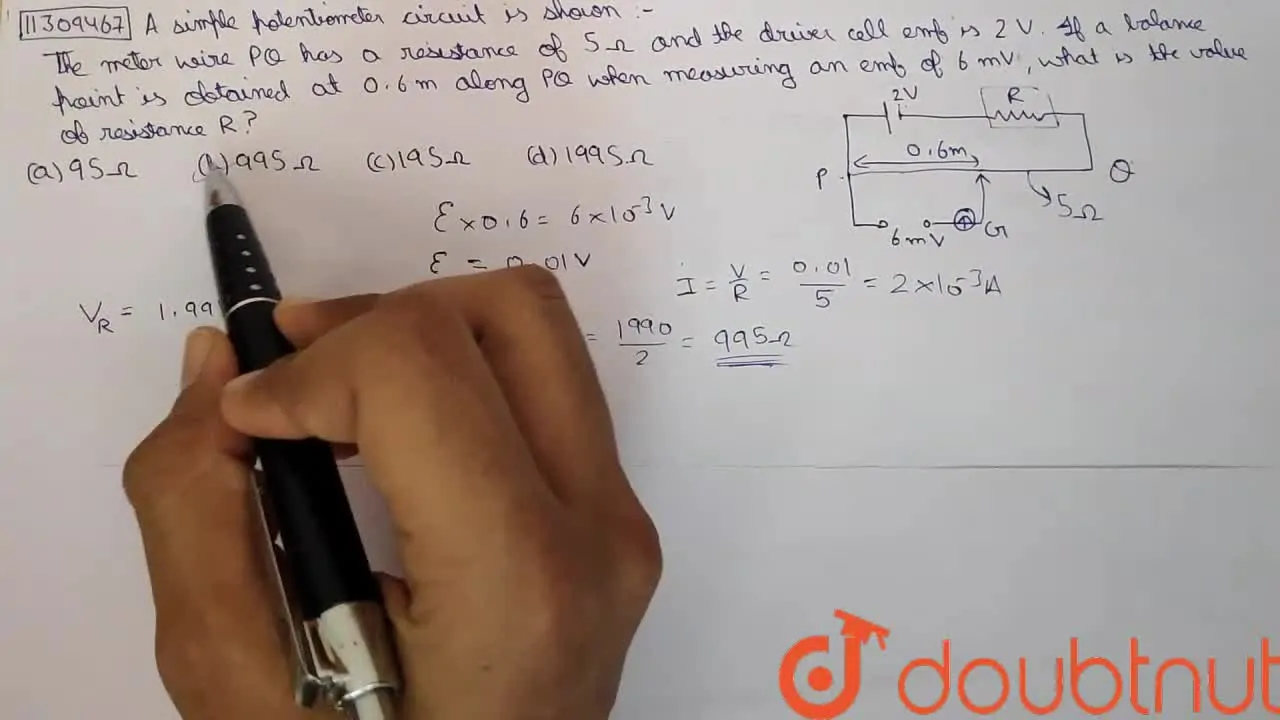 11309467 A simple potentiometer circuit is shown :-
The meter wire PQ has a resistance of 5Ω and the driver cell emf is 2V. If a balance
point is obtained at 0.6m along PQ when measuring an emf of 6mV, what is the value
of resistance R?
(a) 95Ω (b) 995Ω (c) 195Ω (d) 1995Ω
2V R
0.6m
P Q
5Ω
6mV G
ε × 0.6 = 6×10⁻³V
ε = 0.01V
I = V/R = 0.01/5 = 2×10⁻³A
V_R = 1.99
= 1990/2 = 995Ω
doubtnut